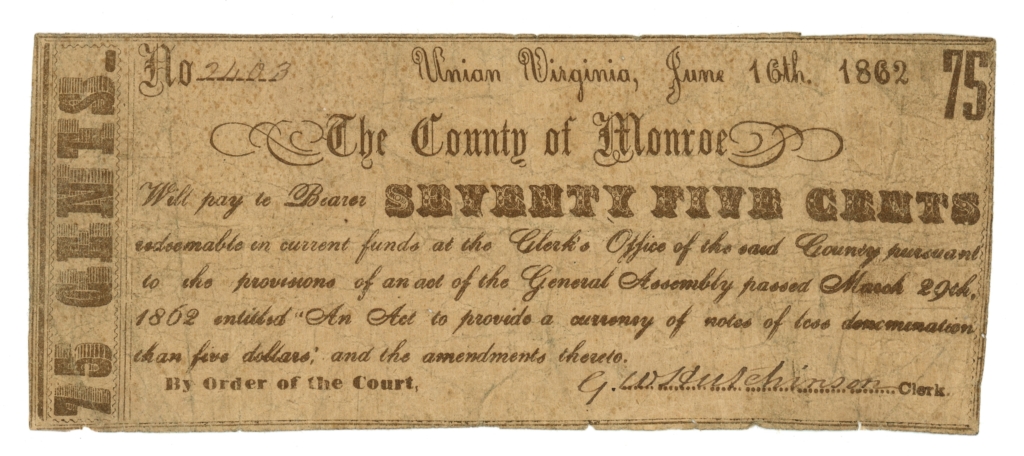 75 CENTS.
No 2403
Union Virginia, June 16th. 1862
75
The County of Monroe
Will pay to Bearer SEVENTY FIVE CENTS
redeemable in current funds at the Clerk's Office of the said County pursuant
to the provisions of an act of the General Assembly passed March 29th,
1862 entitled "An Act to provide a currency of notes of less denomination
than five dollars," and the amendments thereto.
By Order of the Court,
G. W. Hutchinson Clerk.